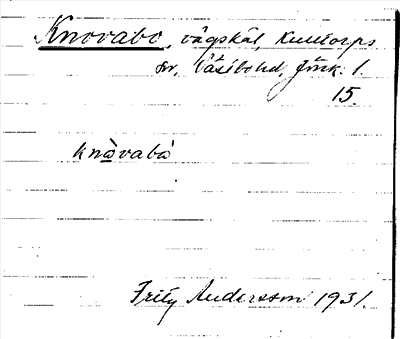 Knovabo, vägskäl, Kulltorps
sn, Västbo hd, Jönk. l.
15.
knåvabå
Fritz Andersson 1931.